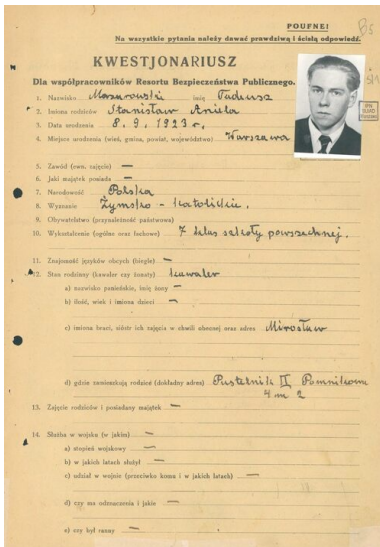 POUFNE!
Bs
Na wszystkie pytania należy dawać prawdziwą i ścisłą odpowiedź.
KWESTJONARIUSZ
Dla współpracowników Resortu Bezpieczeństwa Publicznego.
1. Nazwisko Mazurowski imię Tadeusz
2. Imiona rodziców Stanisław Aniela
3. Data urodzenia 8. 9. 1923 r.
4. Miejsce urodzenia (wieś, gmina, powiat, województwo) Warszawa
5. Zawód (ewn. zajęcie) —
6. Jaki majątek posiada —
7. Narodowość Polska
8. Wyznanie Rzymsko - katolickie.
9. Obywatelstwo (przynależność państwowa)
10. Wykształcenie (ogólne oraz fachowe) 7 klas szkoły powszechnej.
11. Znajomość języków obcych (biegle) —
12. Stan rodzinny (kawaler czy żonaty) kawaler
a) nazwisko panieńskie, imię żony —
b) ilość, wiek i imiona dzieci —
c) imiona braci, sióstr ich zajęcia w chwili obecnej oraz adres Mirosław
d) gdzie zamieszkują rodzice (dokładny adres) Pustelnik II
4 m 2
13. Zajęcie rodziców i posiadany majątek —
14. Służba w wojsku (w jakim) —
a) stopień wojskowy —
b) w jakich latach służył —
c) udział w wojnie (przeciwko komu i w jakich latach) —
d) czy ma odznaczenia i jakie —
e) czy był ranny —